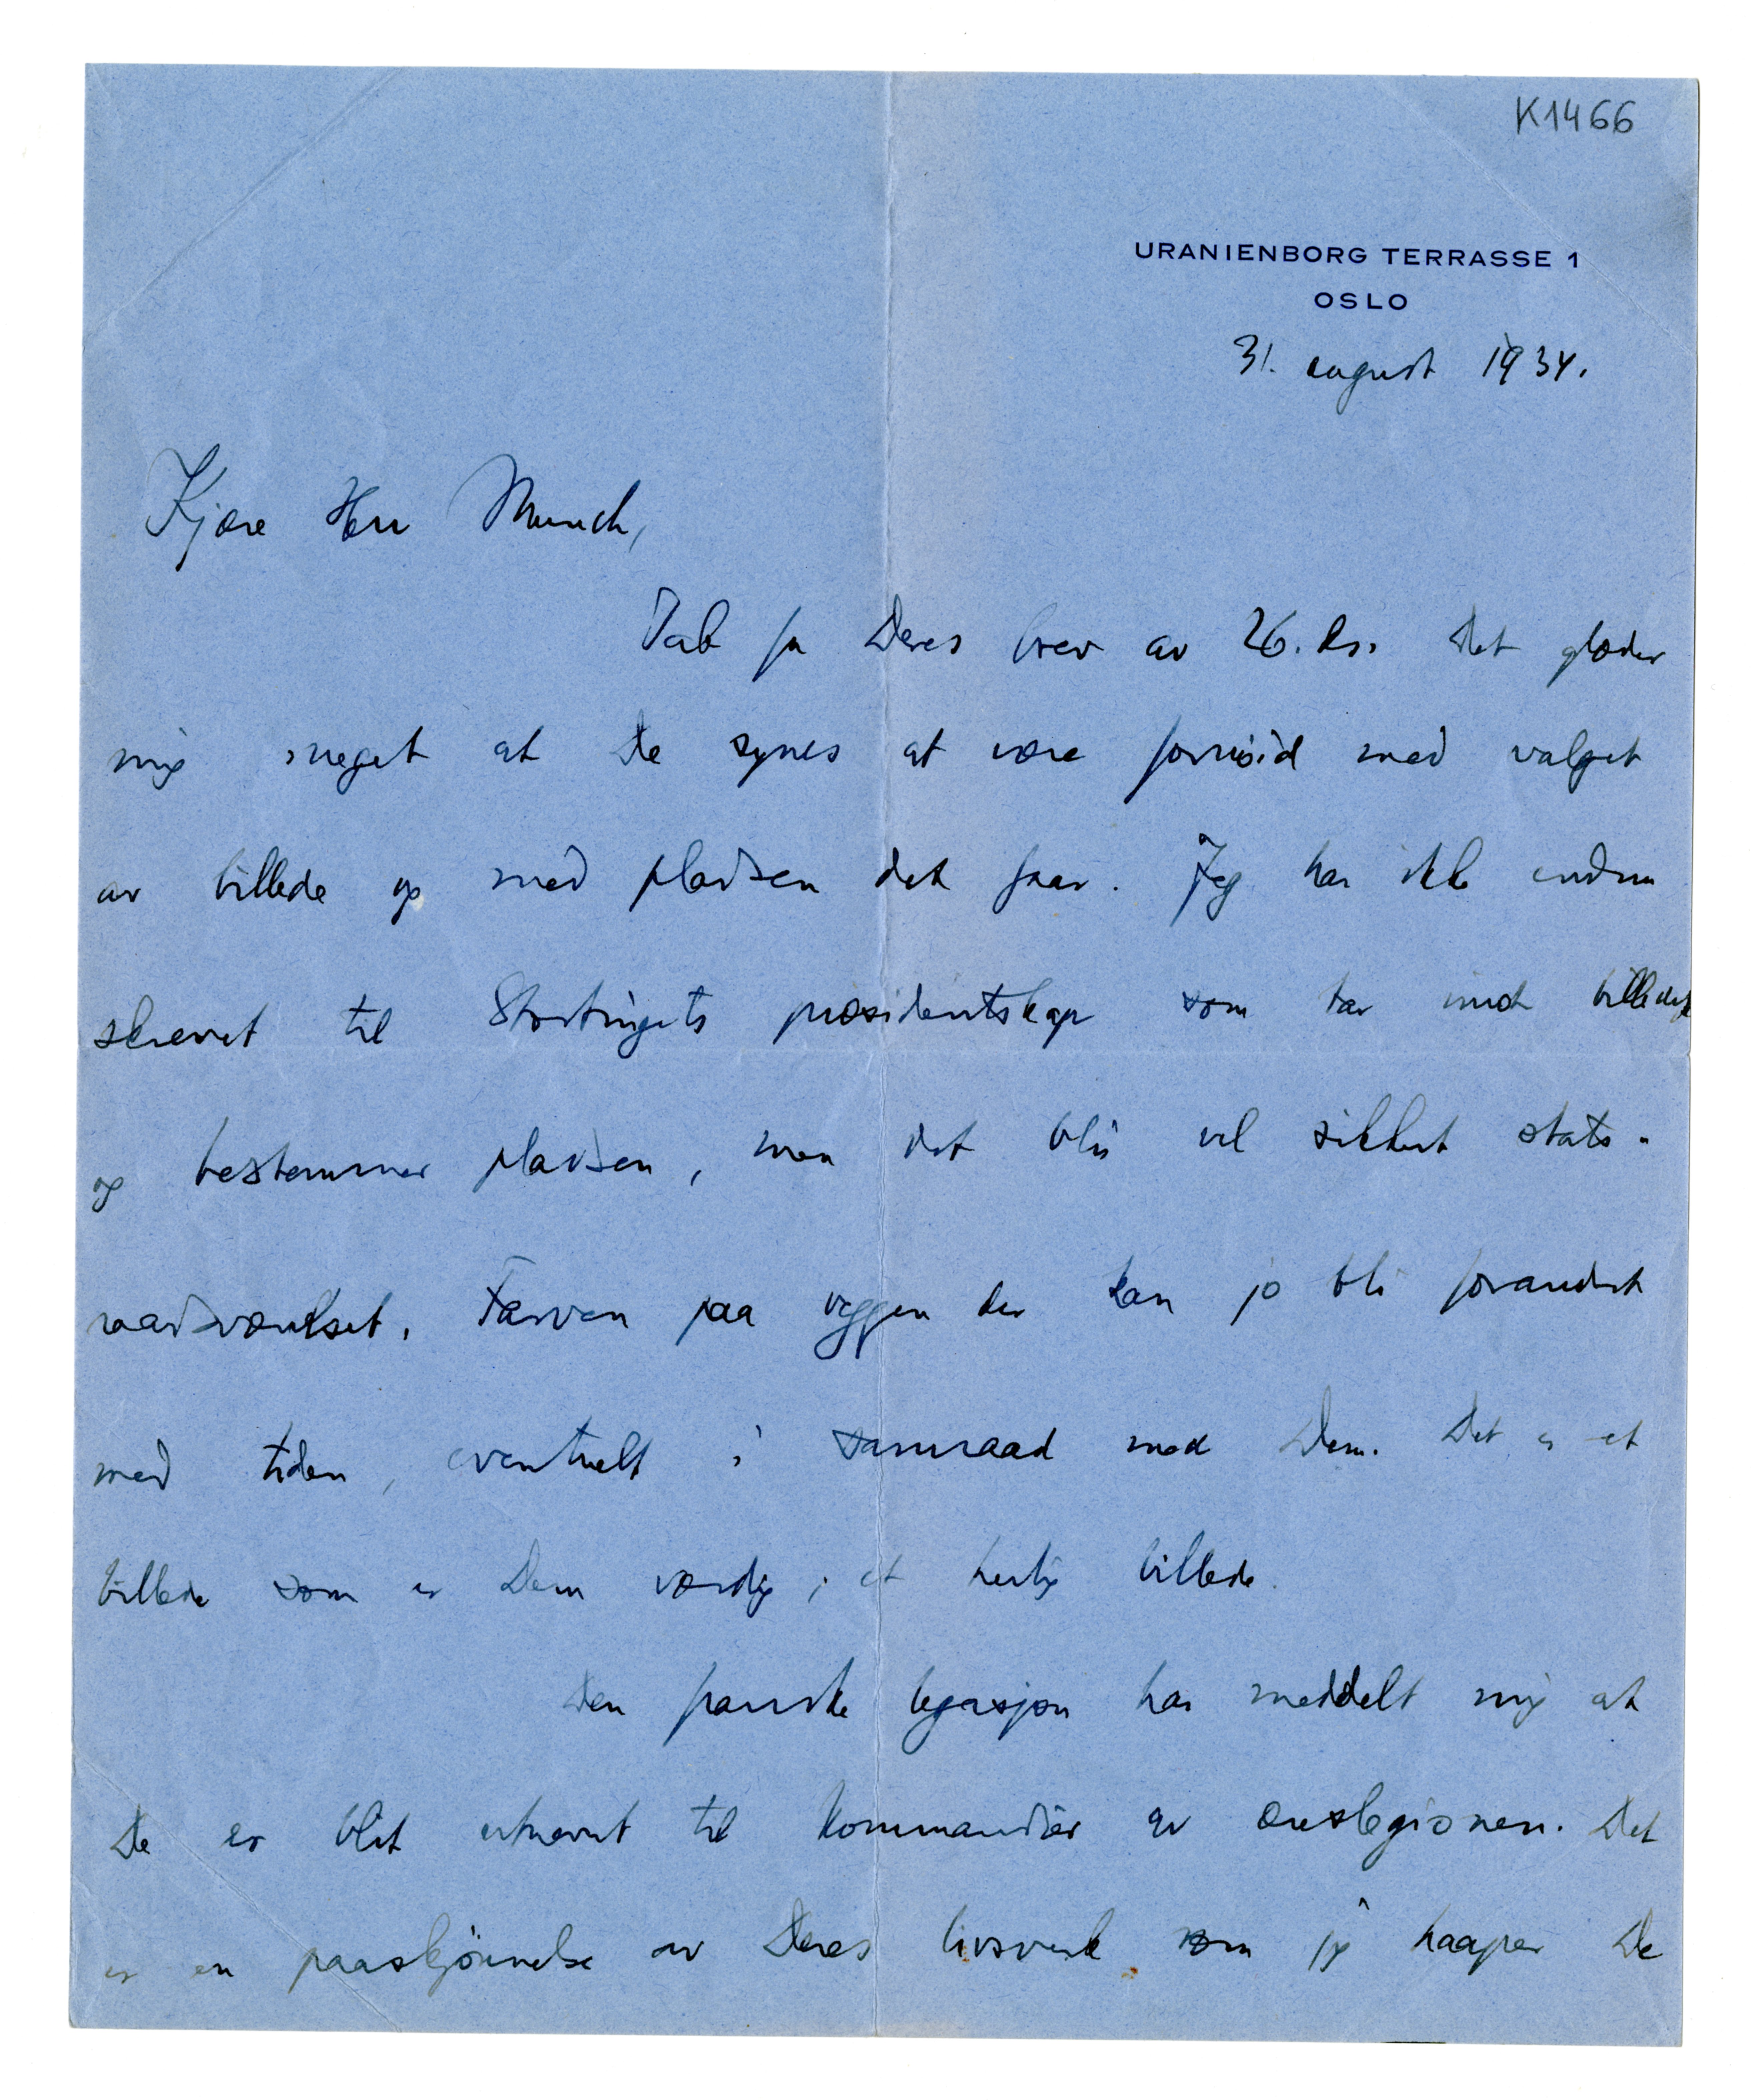 K1466
URANIENBORG TERRASSE 1
OSLO
31. august 1934.
Kjære Herr Munch,
Takk for Deres brev av 26. ds. Det glæder
mig meget at De synes at være fornöid med valget
av billede og med pladsen det faar. Jeg har ikke endnu
skrevet til Stortingets præsidentskap som tar imot billedet
og bestemmer pladsen, men det blir vel sikkert stats-
raadsværelset. Farven paa veggen der kan jo bli forandret
med tiden, eventuelt i samraad med Dem. Det er et
billede som er Dem værdig, et herlig billede.
Den franske legasjon har meddelt mig at
De er blit utnevnt til kommandör av æreslegionen. Det
er en paaskjönnelse av Deres livsverk som jeg haaper De